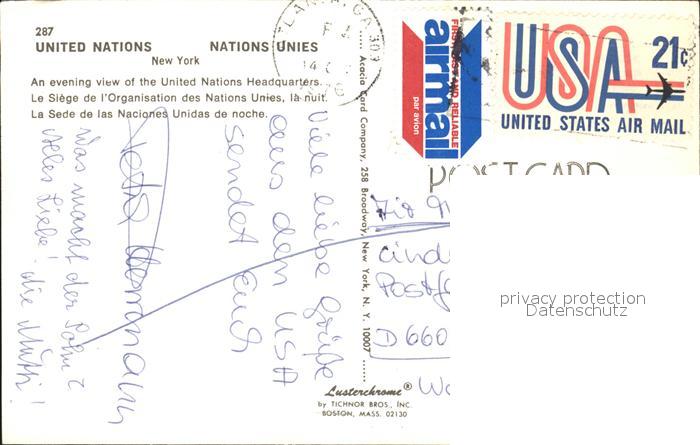 287
UNITED NATIONS NATIONS UNIES
New York
An evening view of the United Nations Headquarters.
Le Siège de l'Organisation des Nations Unies, la nuit.
La Sede de las Naciones Unidas de noche.
FIRST CLASS AND RELIABLE
airmail
par avion
USA 21c
UNITED STATES AIR MAIL
POST CARD
Acacia Card Company, 258 Broadway, New York, N. Y. 10007
Viele liebe Grüße
aus den USA
sendet Euch
Herrmann
Was macht der Sohn?
Alles Liebe! die Mutti!
Air M
Postf
D 660
privacy protection
Datenschutz
Lusterchrome®
by TICHNOR BROS., INC.
BOSTON, MASS. 02130